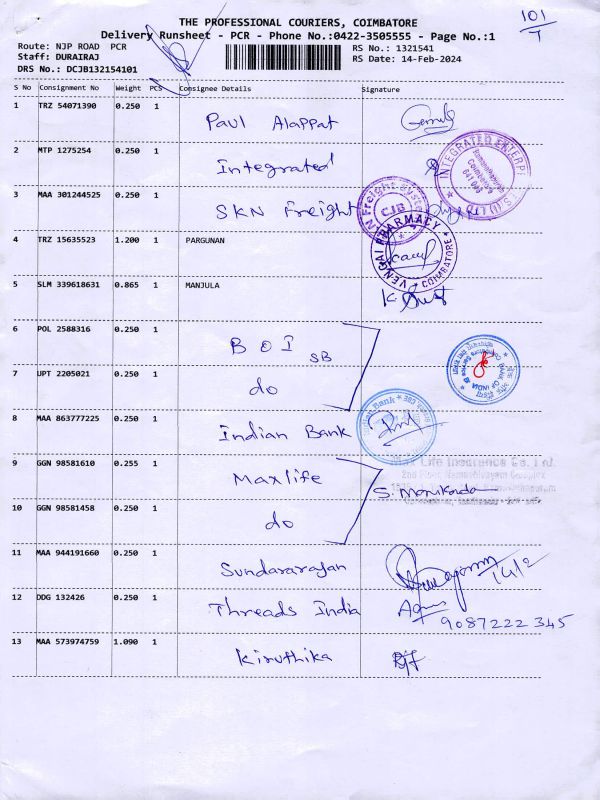 101
T
THE PROFESSIONAL COURIERS, COIMBATORE
Delivery Runsheet - PCR - Phone No.:0422-3505555 - Page No.:1
Route: NJP ROAD PCR
RS No.: 1321541
Staff: DURAIRAJ
RS Date: 14-Feb-2024
DRS No.: DCJB132154101
S No Consignment No Weight PCS Consignee Details Signature
1 TRZ 54071390 0.250 1 Paul Alappat
2 MTP 1275254 0.250 1 Integrated
INTEGRATED ENTERPRI
Coimbatore
641 045
S (I) LTD
3 MAA 301244525 0.250 1 SKN Freight
N Freight Syste
CJB
4 TRZ 15635523 1.200 1 PARGUNAN
VENGAI PHARMACY
COIMBATORE
5 SLM 339618631 0.865 1 MANJULA
6 POL 2588316 0.250 1 BOI SB
BANK OF INDIA
7 UPT 2205021 0.250 1 do
8 MAA 863777225 0.250 1 Indian Bank
Indian Bank
9 GGN 98581610 0.255 1 Maxlife
Max Life Insurance Co. Ltd.
S. Manikanda
10 GGN 98581458 0.250 1 do
11 MAA 944191660 0.250 1 Sundararajan 14/2
12 DDG 132426 0.250 1 Threads India
9087222345
13 MAA 573974759 1.090 1 Kiruthika